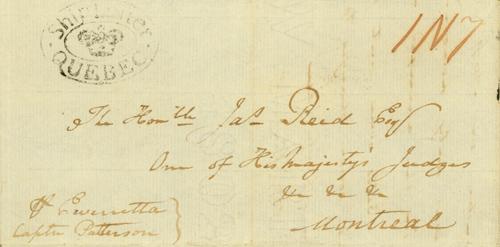 Ship Letter
QUEBEC
1N7
The Honble Jas Reid Esqr
One of His Majesty's Judges
&c &c &c
Montreal
Everretta
Captn Patterson